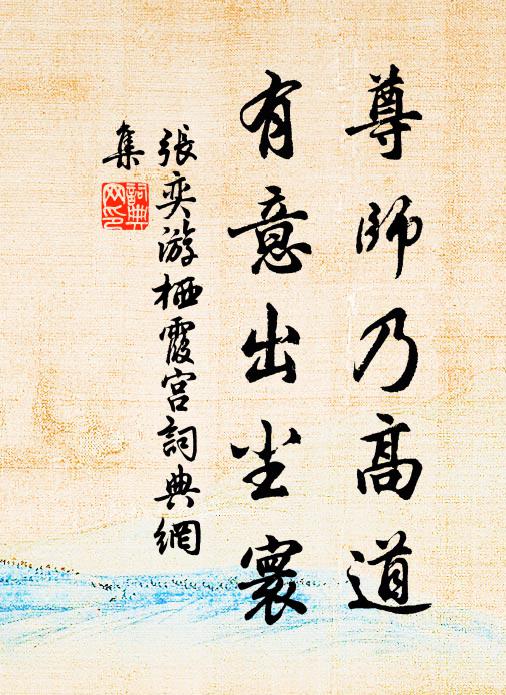 尊師乃高道
有意出尘寰
張奕游栖霞宮詞典網
集
詞典
网印